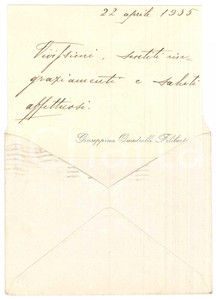 22 aprile 1935
Vivissimi, sentiti rin-
graziamenti e saluti
affettuosi.
Giuseppina Quadrelli